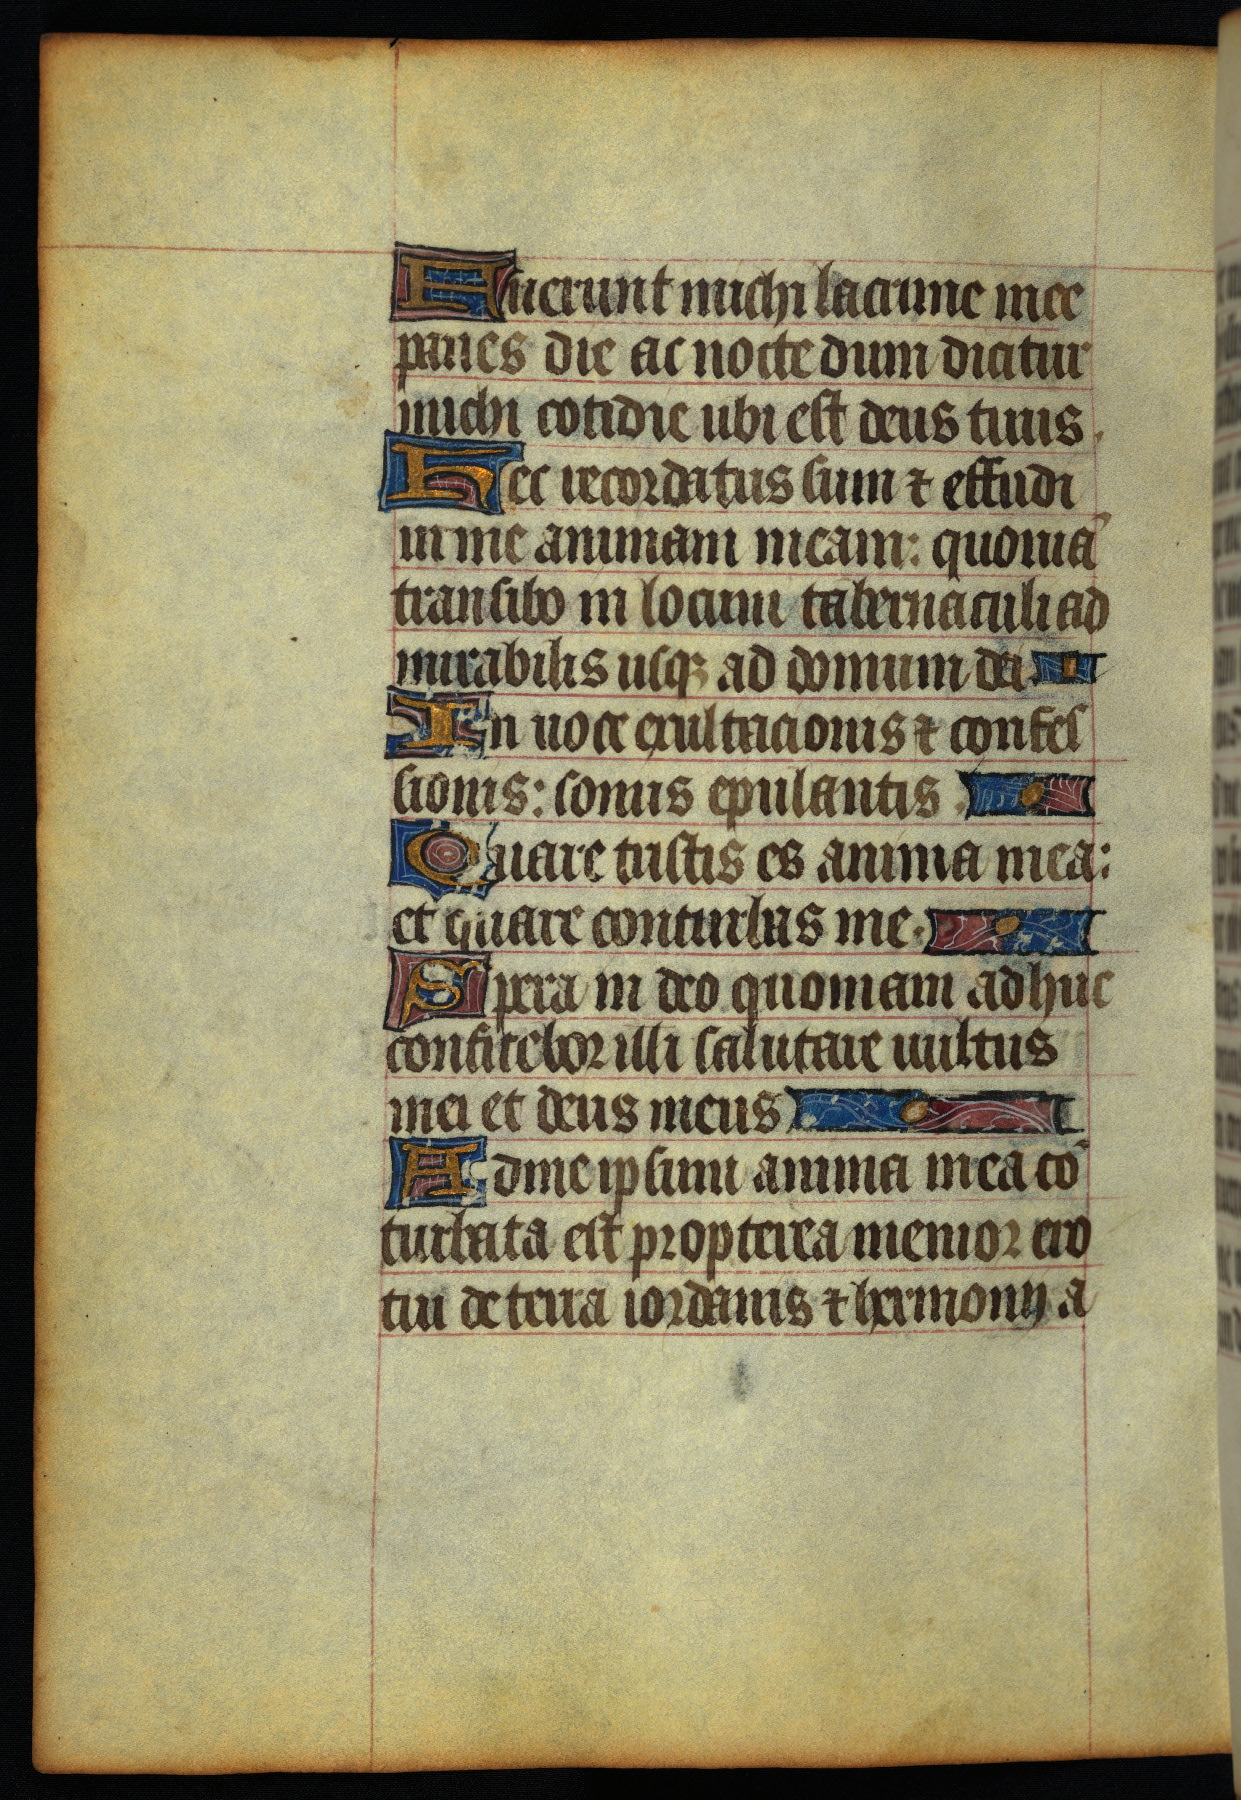 Fuerunt michi lacrime mee
panes die ac nocte dum dicitur
michi cotidie ubi est deus tuus.
Hec recordatus sum ⁊ effudi
in me animam meam: quoniā
transibo in locum tabernaculi ad
mirabilis usqꝫ ad domum dei.
In uoce exultacionis ⁊ confes
sionis: sonus epulantis.
Quare tristis es anima mea:
et quare conturbas me.
Spera in deo quoniam adhuc
confitebor illi salutare uultus
mei et deus meus
Ad me ipsum anima mea cō
turbata est propterea memor ero
tui de terra iordanis ⁊ hermonij a